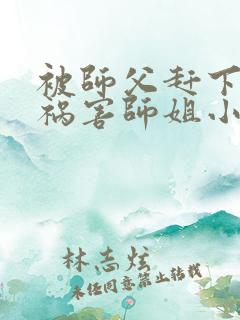 被師父赶下
祸害師姐小
林志炫
未经同意禁止转载